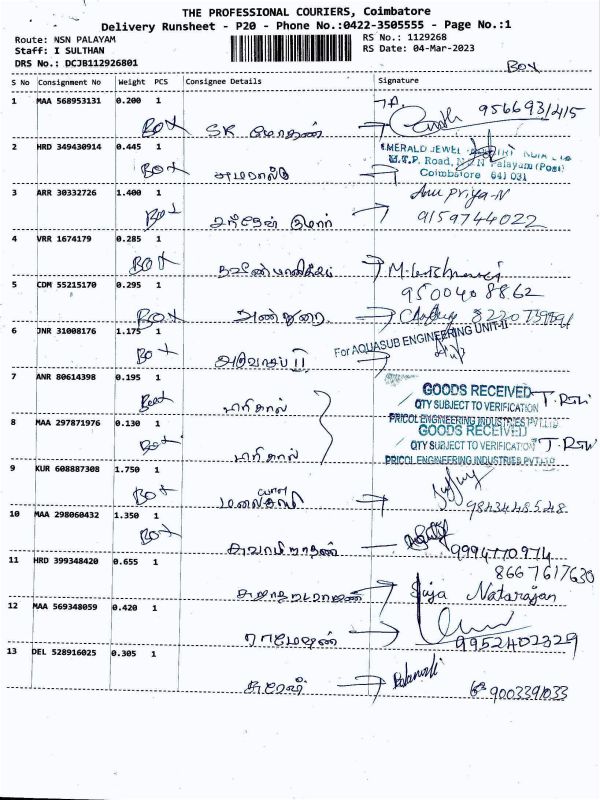 THE PROFESSIONAL COURIERS, Coimbatore
Delivery Runsheet - P20 - Phone No.:0422-3505555 - Page No.:1
Route: NSN PALAYAM RS No.: 1129268
Staff: I SULTHAN RS Date: 04-Mar-2023
DRS No.: DCJB112926801
BOX
S No Consignment No Weight PCS Consignee Details Signature
1 MAA 568953131 0.200 1
BOX SK மோகன் 9566931415
2 HRD 349430914 0.445 1
EMERALD JEWEL
M.T.P. Road, N.S.N Palayam (Post)
Coimbatore 641 031
BOX
3 ARR 30332726 1.400 1 Anu priya-N
BOX 9159744022
4 VRR 1674179 0.285 1
BOX
5 CDM 55215170 0.295 1 9500408862
BOX
6 JNR 31008176 1.175 1
For AQUASUB ENGINEERING UNIT-II
BOX
7 ANR 80614398 0.195 1
GOODS RECEIVED
QTY SUBJECT TO VERIFICATION
PRICOL ENGINEERING INDUSTRIES PVT LTD
Box பரிகால்
8 MAA 297871976 0.130 1
GOODS RECEIVED
QTY SUBJECT TO VERIFICATION
PRICOL ENGINEERING INDUSTRIES PVT LTD
Box பரிகால்
9 KUR 608887308 1.750 1
BOX 9843448548
10 MAA 298060432 1.350 1
BOX சுவாமிநாதன் 9994770974
11 HRD 399348420 0.655 1 8667617630
Suja Natarajan
12 MAA 569348059 0.420 1
ராமேஷன் 9952402329
13 DEL 528916025 0.305 1
9003391033